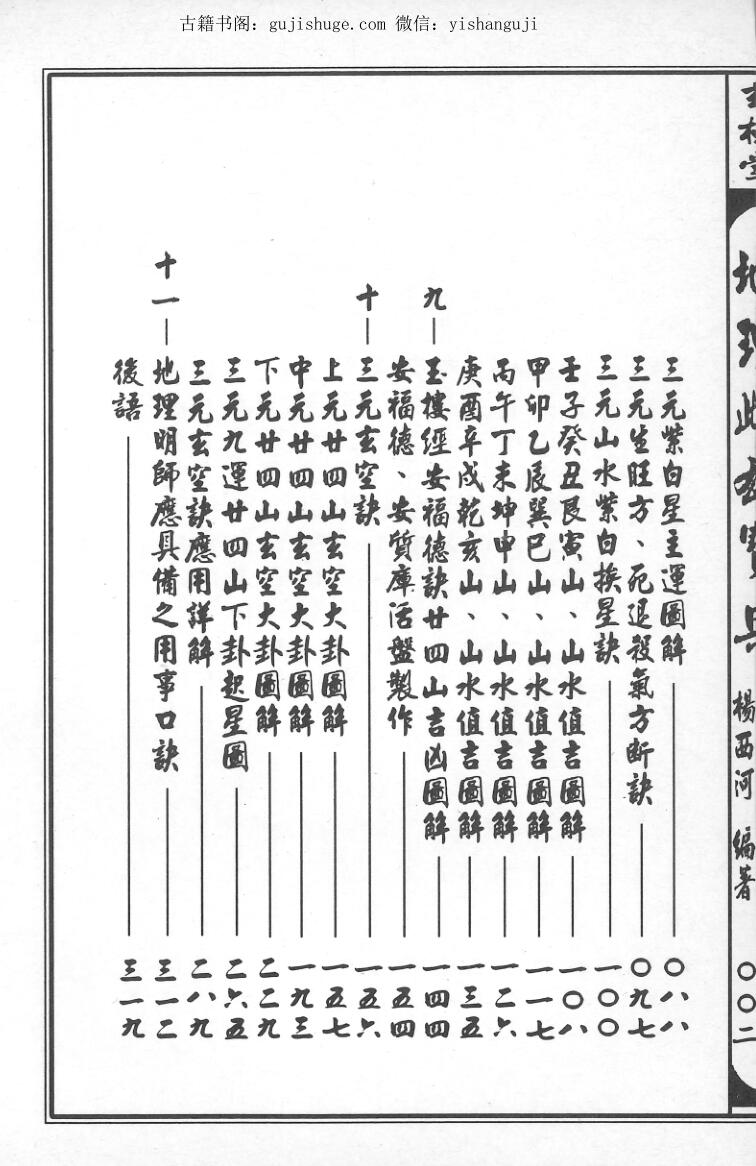 古籍书阁：gujishuge.com 微信：yishanguji
三元紫白星主運圖解 〇八八
三元生旺方、死退殺氣方斷訣 〇九七
三元山水紫白挨星訣 一〇〇
壬子癸丑艮寅山、山水值吉圖解 一〇八
甲卯乙辰巽巳山、山水值吉圖解 一一七
丙午丁未坤申山、山水值吉圖解 一二六
庚酉辛戌乾亥山、山水值吉圖解 一三五
九 玉樓經安福德訣廿四山吉凶圖解 一四四
安福德、安質庫活盤製作 一五四
十 三元玄空訣 一五六
上元廿四山玄空大卦圖解 一五七
中元廿四山玄空大卦圖解 一九三
下元廿四山玄空大卦圖解 二二九
三元九運廿四山下卦起星圖 二六五
三元玄空訣應用詳解 二八九
十一 地理明師應具備之用事口訣 三一二
後語 三一九
楊西河 編著
〇〇二